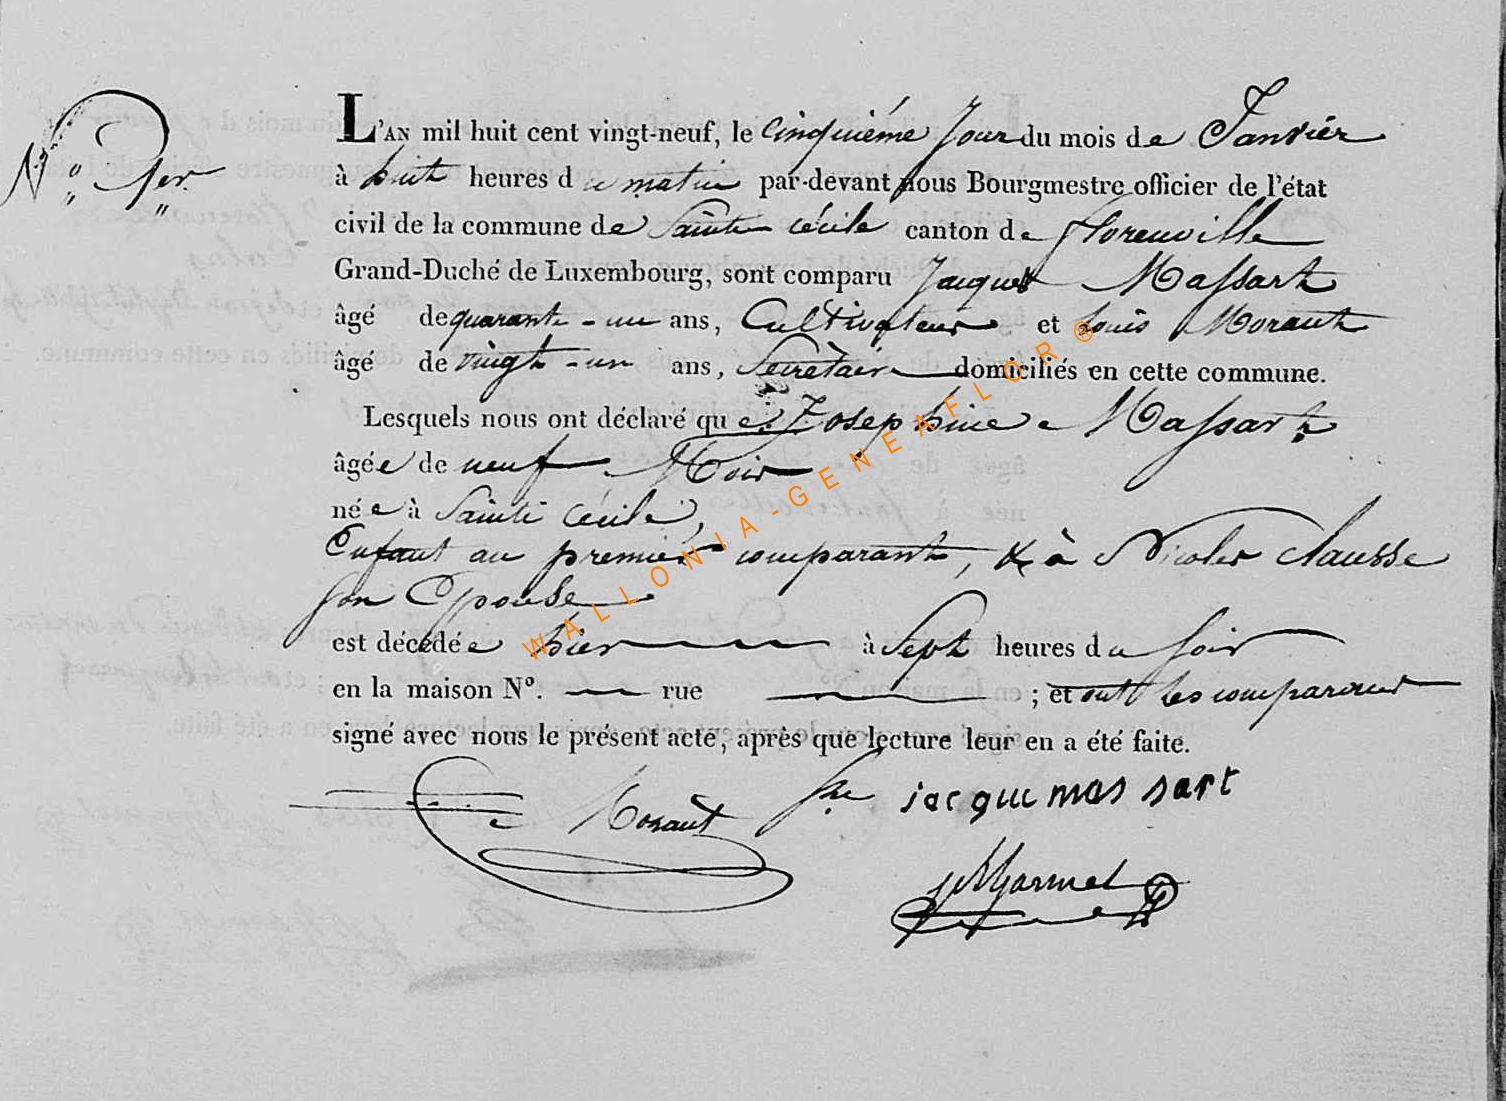 N° 1er
L'AN mil huit cent vingt-neuf, le Cinquiéme Jour du mois de Janviér
à huit heures du matin par-devant nous Bourgmestre officier de l'état
civil de la commune de Sainte cécile canton de florenville
Grand-Duché de Luxembourg, sont comparu Jacques Massart
âgé de quarante-un ans, Cultivateur et Louis Moraut
âgé de vingt-un ans, Secrètaire domiciliés en cette commune.
Lesquels nous ont déclaré que Josephine Massart
âgée de neuf Mois
née à Sainte cécile,
Enfant au premiér comparant, & à Nicoles Clausse
son Epouse
est décédée hier à Sept heures du soir
en la maison N°. rue ; et ont les comparans
signé avec nous le présent acte, après que lecture leur en a été faite.
Moraut jacque massart
WALLONIA-GENEAFLOR®